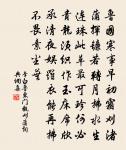 魯國寒事早初霜刈渚
蒲揮鐮若轉月拂水生
連珠此草最可珍何必
貴龍須織作玉床席欣
承清夜娛羅衣能再拂
不畏素塵蕪
李白魯東門觀刈蒲詩詞
典網集